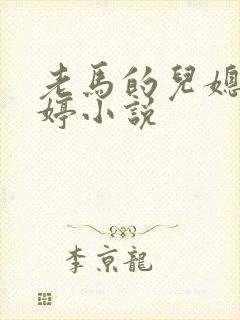 老馬的兒媳
婷小說
李京龍